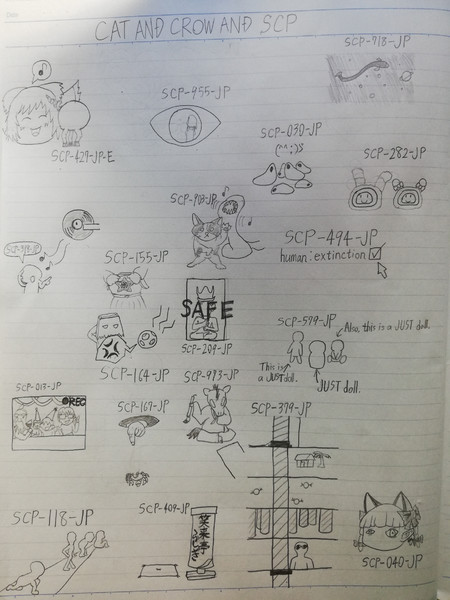 CAT AND CROW AND SCP
SCP-718-JP
SCP-955-JP
SCP-030-JP
SCP-429-JP-E
SCP-282-JP
SCP-903-JP
SCP-494-JP
human:extinction
SCP-155-JP
SAFE
SCP-204-JP
SCP-579-JP
Also, this is a JUST doll.
This is
a JUST doll.
JUST doll.
SCP-164-JP
SCP-973-JP
SCP-013-JP
REC
SCP-167-JP
SCP-379-JP
SCP-409-JP
SCP-118-JP
笑来亭
SCP-040-JP